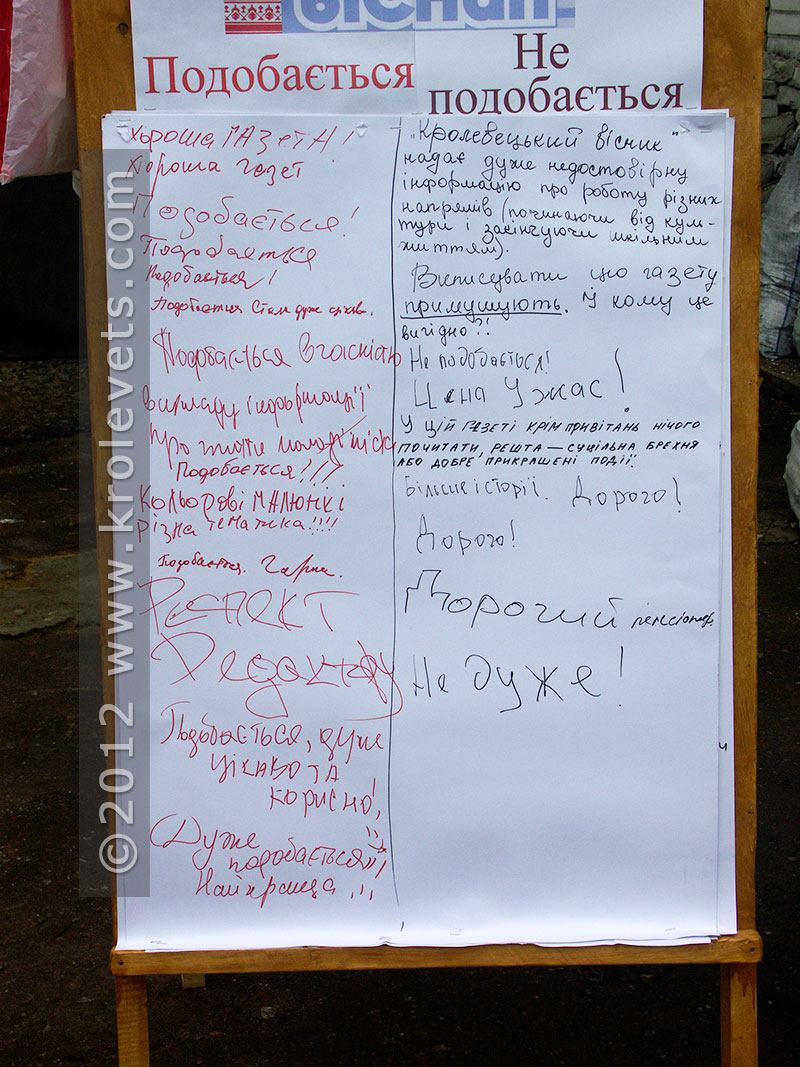 вісник
Подобається
Не
подобається
хороша ГАЗЕТА!
хороша газет
Подобається!
Подобається
Подобається!
Подобається дуже цікаво.
Подобається
викладу інформації
про
Подобається!!!
Кольорові МАЛЮНКІ
різна тематика!!!!
Подобається. Гарна.
РЕСПЕКТ
Редактору
Подобається, дуже
цікаво та
корисно!
Дуже
подобається!!!
Найкраща !!!
"Кролевецький вісник"
надає дуже недостовірну
інформацію про роботу різних
напрямів (починаючи від куль-
тури і закінчуючи шкільним
життям).
Виписувати цю газету
примушують. І кому це
вигідно?!
Не подобається!
Цена Ужас!
У ЦІЙ ГАЗЕТІ КРІМ ПРИВІТАНЬ НІЧОГО
ПОЧИТАТИ, РЕШТА — СУЦІЛЬНА БРЕХНЯ
АБО ДОБРЕ ПРИКРАШЕНІ ПОДІЇ.
Більше історії. Дорого!
Дорого!
Дорогий пенсіонер.
Не дуже!
©2012 www.krolevets.com